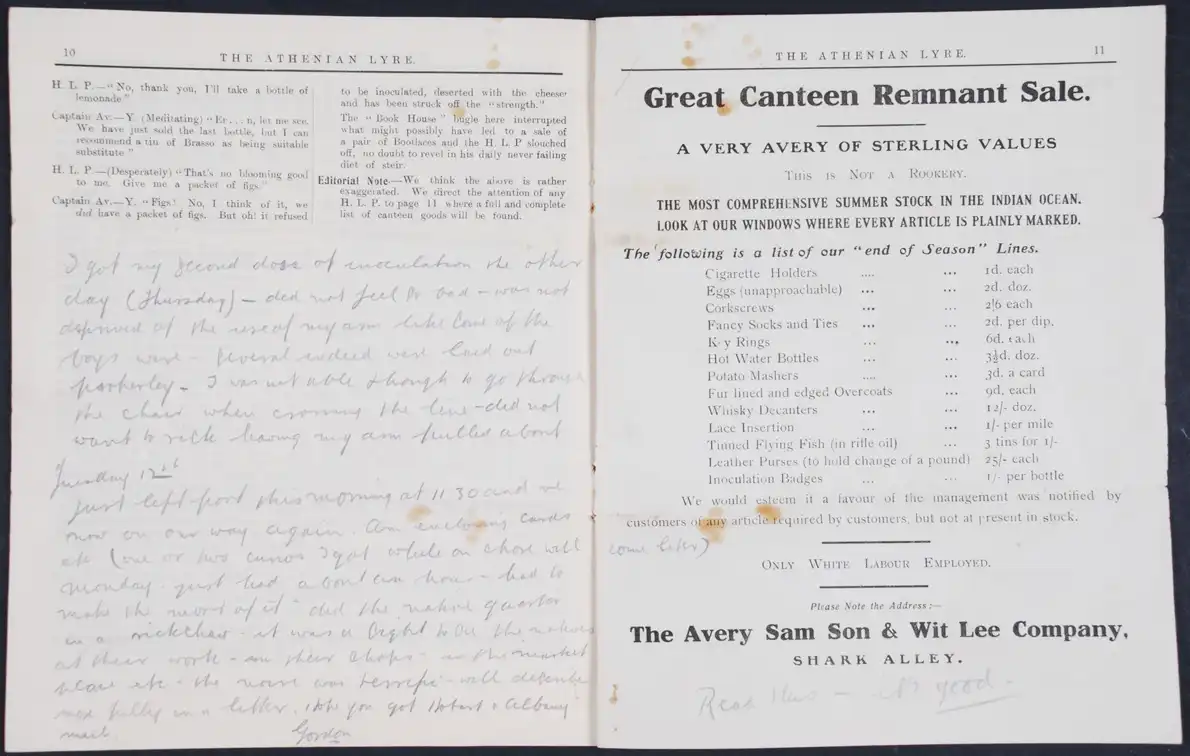 10
THE ATHENIAN LYRE.
H. L. P.—"No, thank you, I'll take a bottle of
lemonade"
Captain Av.—Y. (Meditating) "Er . . . n, let me see.
We have just sold the last bottle, but I can
recommend a tin of Brasso as being suitable
substitute"
H. L. P.—(Desperately) "That's no blooming good
to me. Give me a packet of figs."
Captain Av.—Y. "Figs! No, I think of it, we
did have a packet of figs. But oh! it refused
to be inoculated, deserted with the cheese
and has been struck off the "strength."
The "Book House" bugle here interrupted
what might possibly have led to a sale of
a pair of Bootlaces and the H. L. P slouched
off, no doubt to revel in his daily never failing
diet of steir.
Editorial Note—We think the above is rather
exaggerated. We direct the attention of any
H. L. P. to page 11 where a full and complete
list of canteen goods will be found.
I got my second dose of inoculation the other
day (Thursday) — did not feel so bad — was not
deprived of the use of my arm like some of the
boys were — several indeed were laid out
properley — I was not able though to go through
the chair when crossing the line — did not
want to risk having my arm pulled about
Tuesday 12th
Just left port this morning at 11 30 and we
now on our way again. Am enclosing cards
etc (one or two curios I got while on shore will
monday - just had about an hour - had to
make the most of it - did the native quarter
in a rickshaw - it was a sight to see the natives
at their work - in their shops - in the market
place etc - the noise was terrific - will describe
more fully in a letter. Hope you got Hobart & Albany
mail.
Gordon
THE ATHENIAN LYRE.
11
Great Canteen Remnant Sale.
A VERY AVERY OF STERLING VALUES
THIS IS NOT A ROOKERY.
THE MOST COMPREHENSIVE SUMMER STOCK IN THE INDIAN OCEAN.
LOOK AT OUR WINDOWS WHERE EVERY ARTICLE IS PLAINLY MARKED.
The following is a list of our "end of Season" Lines.
Cigarette Holders .... ... 1d. each
Eggs (unapproachable) ... ... 2d. doz.
Corkscrews ... ... 2/6 each
Fancy Socks and Ties ... ... 2d. per dip.
K y Rings ... ... 6d. each
Hot Water Bottles ... ... 3½d. doz.
Potato Mashers .... ... 3d. a card
Fur lined and edged Overcoats ... 9d. each
Whisky Decanters ... ... 12/- doz.
Lace Insertion ... ... 1/- per mile
Tinned Flying Fish (in rifle oil) ... 3 tins for 1/-
Leather Purses (to hold change of a pound) 25/- each
Inoculation Badges ... ... 1/- per bottle
We would esteem it a favour of the management was notified by
customers of any article required by customers, but not at present in stock.
come later)
ONLY WHITE LABOUR EMPLOYED.
Please Note the Address:—
The Avery Sam Son & Wit Lee Company,
SHARK ALLEY.
Read this — it's good —